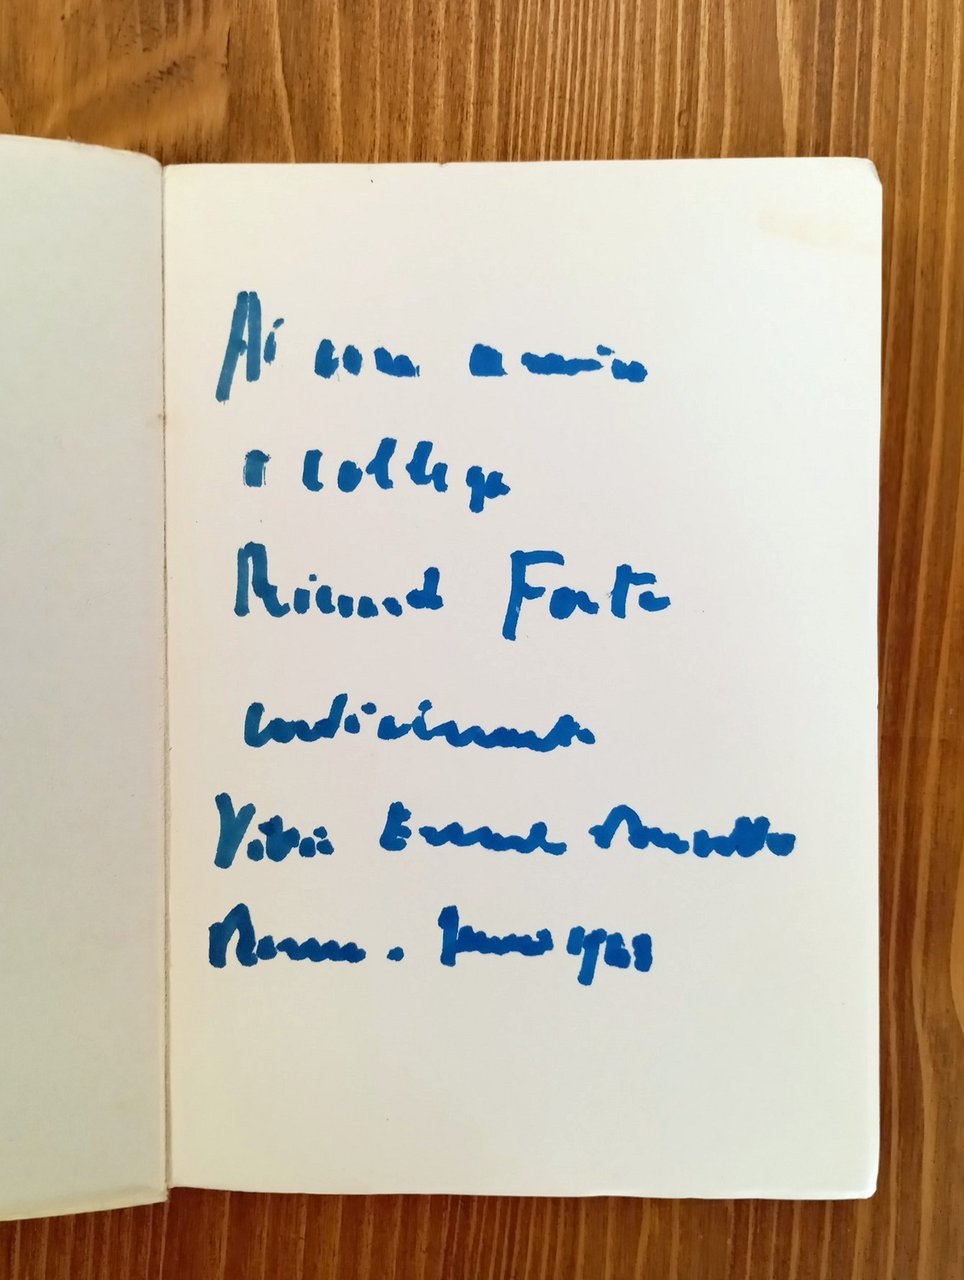 Al caro amico
e collega
Riccardo Forte
cordialmente
Vittorio Emanuele
Roma.